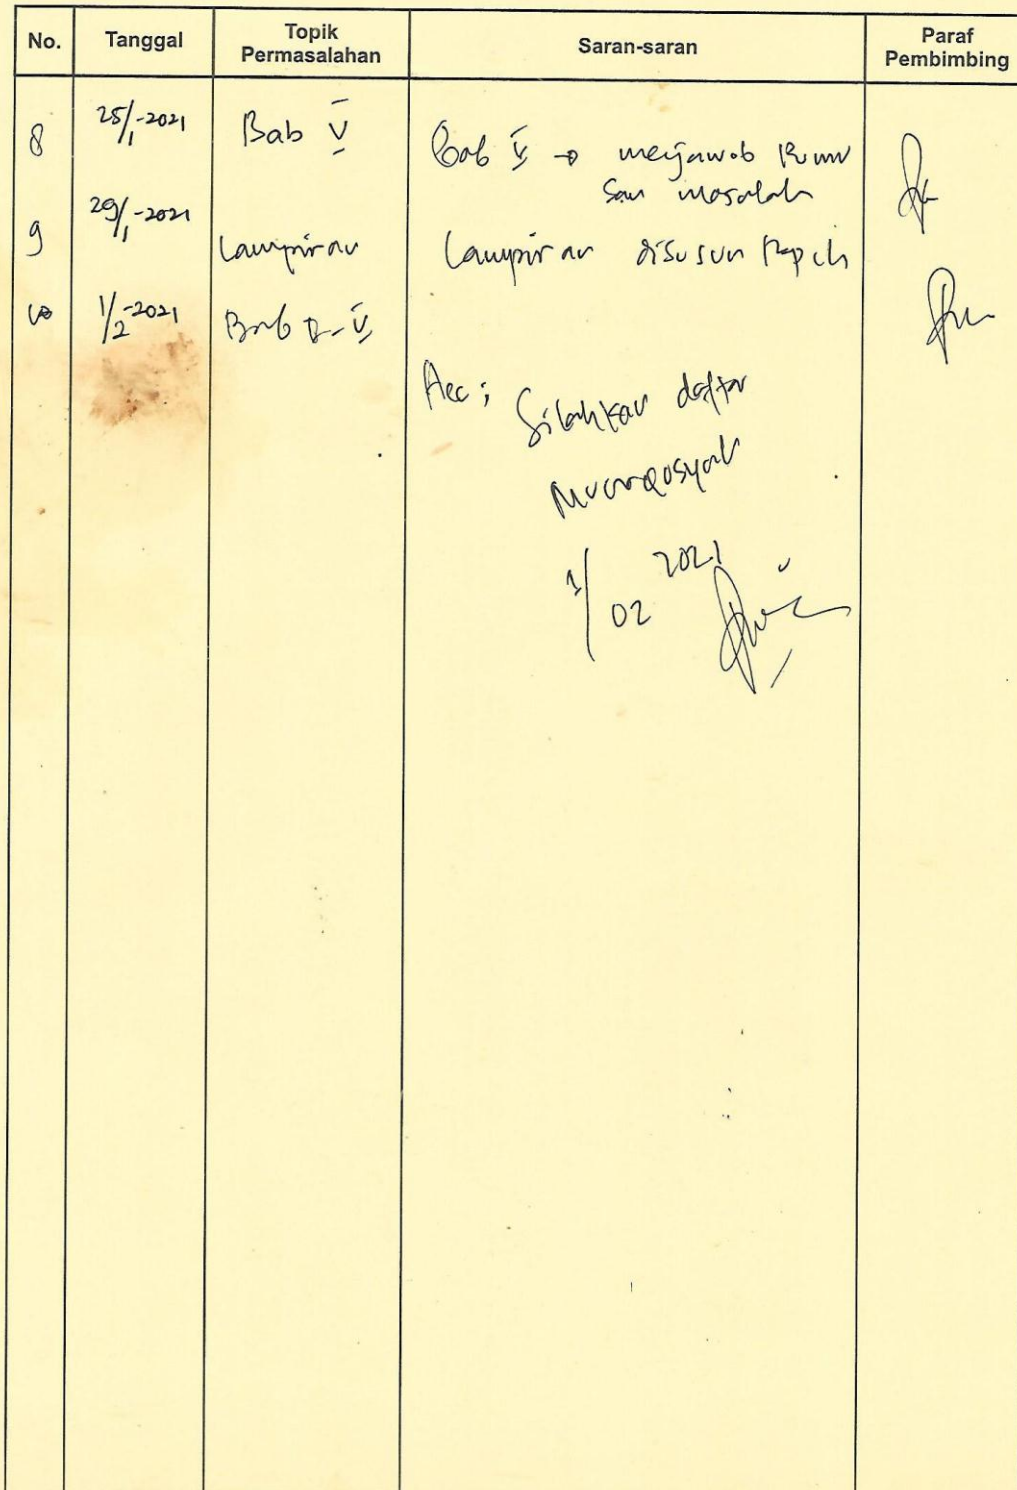 No. Tanggal Topik Permasalahan Saran-saran Paraf Pembimbing
8 25/1-2021 Bab V Bab V → menjawab Rumu
san masalah
9 29/1-2021 Lampiran Lampiran disusun Rapih
10 1/2-2021 Bab I-V
Acc ; Silahkan daftar
Munaqosyah
1/02 2021